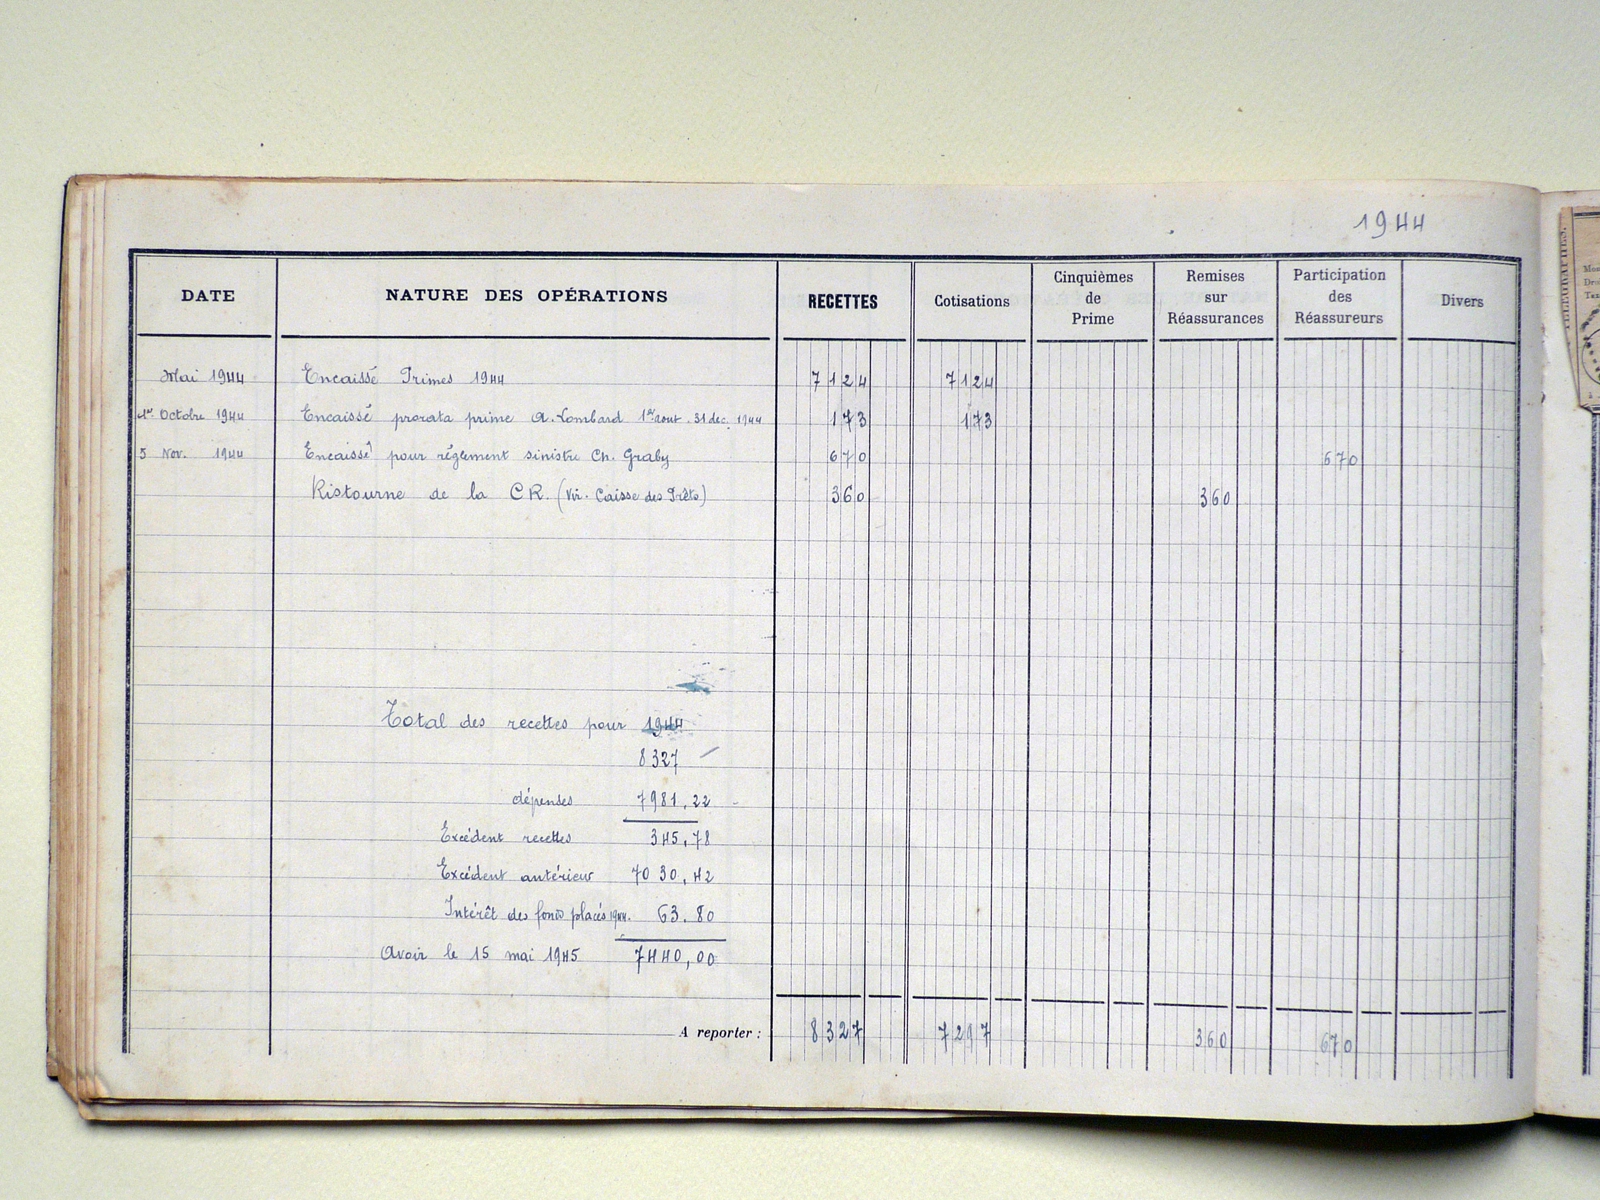 1944
DATE NATURE DES OPÉRATIONS RECETTES Cotisations Cinquièmes de Prime Remises sur Réassurances Participation des Réassureurs Divers
Mai 1944 Encaissé Primes 1944 7124 7124
1er Octobre 1944 Encaissé prorata prime A. Lombard 1er aout . 31 dec. 1944 173 173
5 Nov. 1944 Encaissé pour réglement sinistre Ch. Graby 670 670
Ristourne de la C R. (Vir. Caisse des Prêts) 360 360
Total des recettes pour 1944
8327
dépenses 7981,22
Excédent recettes 345,78
Excédent antérieur 7030,42
Intérêt des fonds placés 1944. 63.80
Avoir le 15 mai 1945 7440,00
A reporter : 8327 7297 360 670